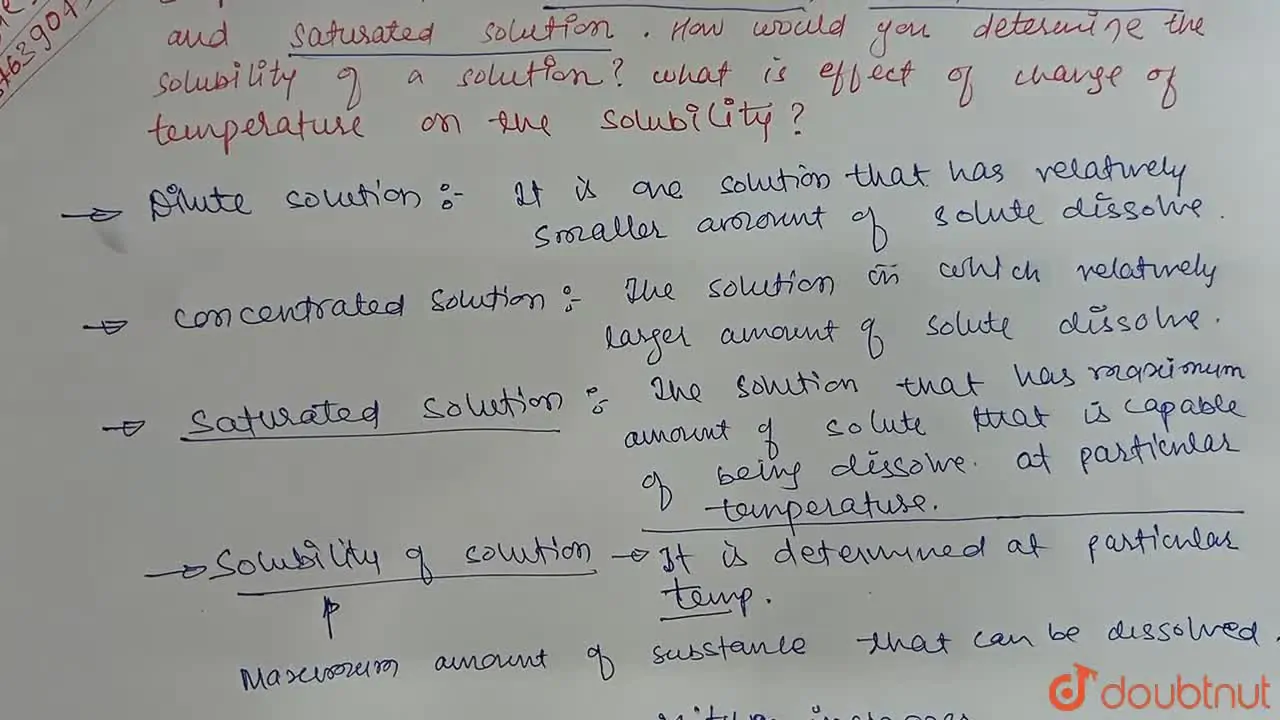 and saturated solution. How would you determine the
solubility of a solution? what is effect of change of
temperature on the solubility?
→ Dilute solution :- It is one solution that has relatively
smaller amount of solute dissolve.
→ concentrated solution :- The solution in which relatively
larger amount of solute dissolve.
→ Saturated solution :- The solution that has maximum
amount of solute that is capable
of being dissolve. at particular
temperature.
→ Solubility of solution → It is determined at particular
temp.
Maximum amount of substance that can be dissolved.
doubtnut